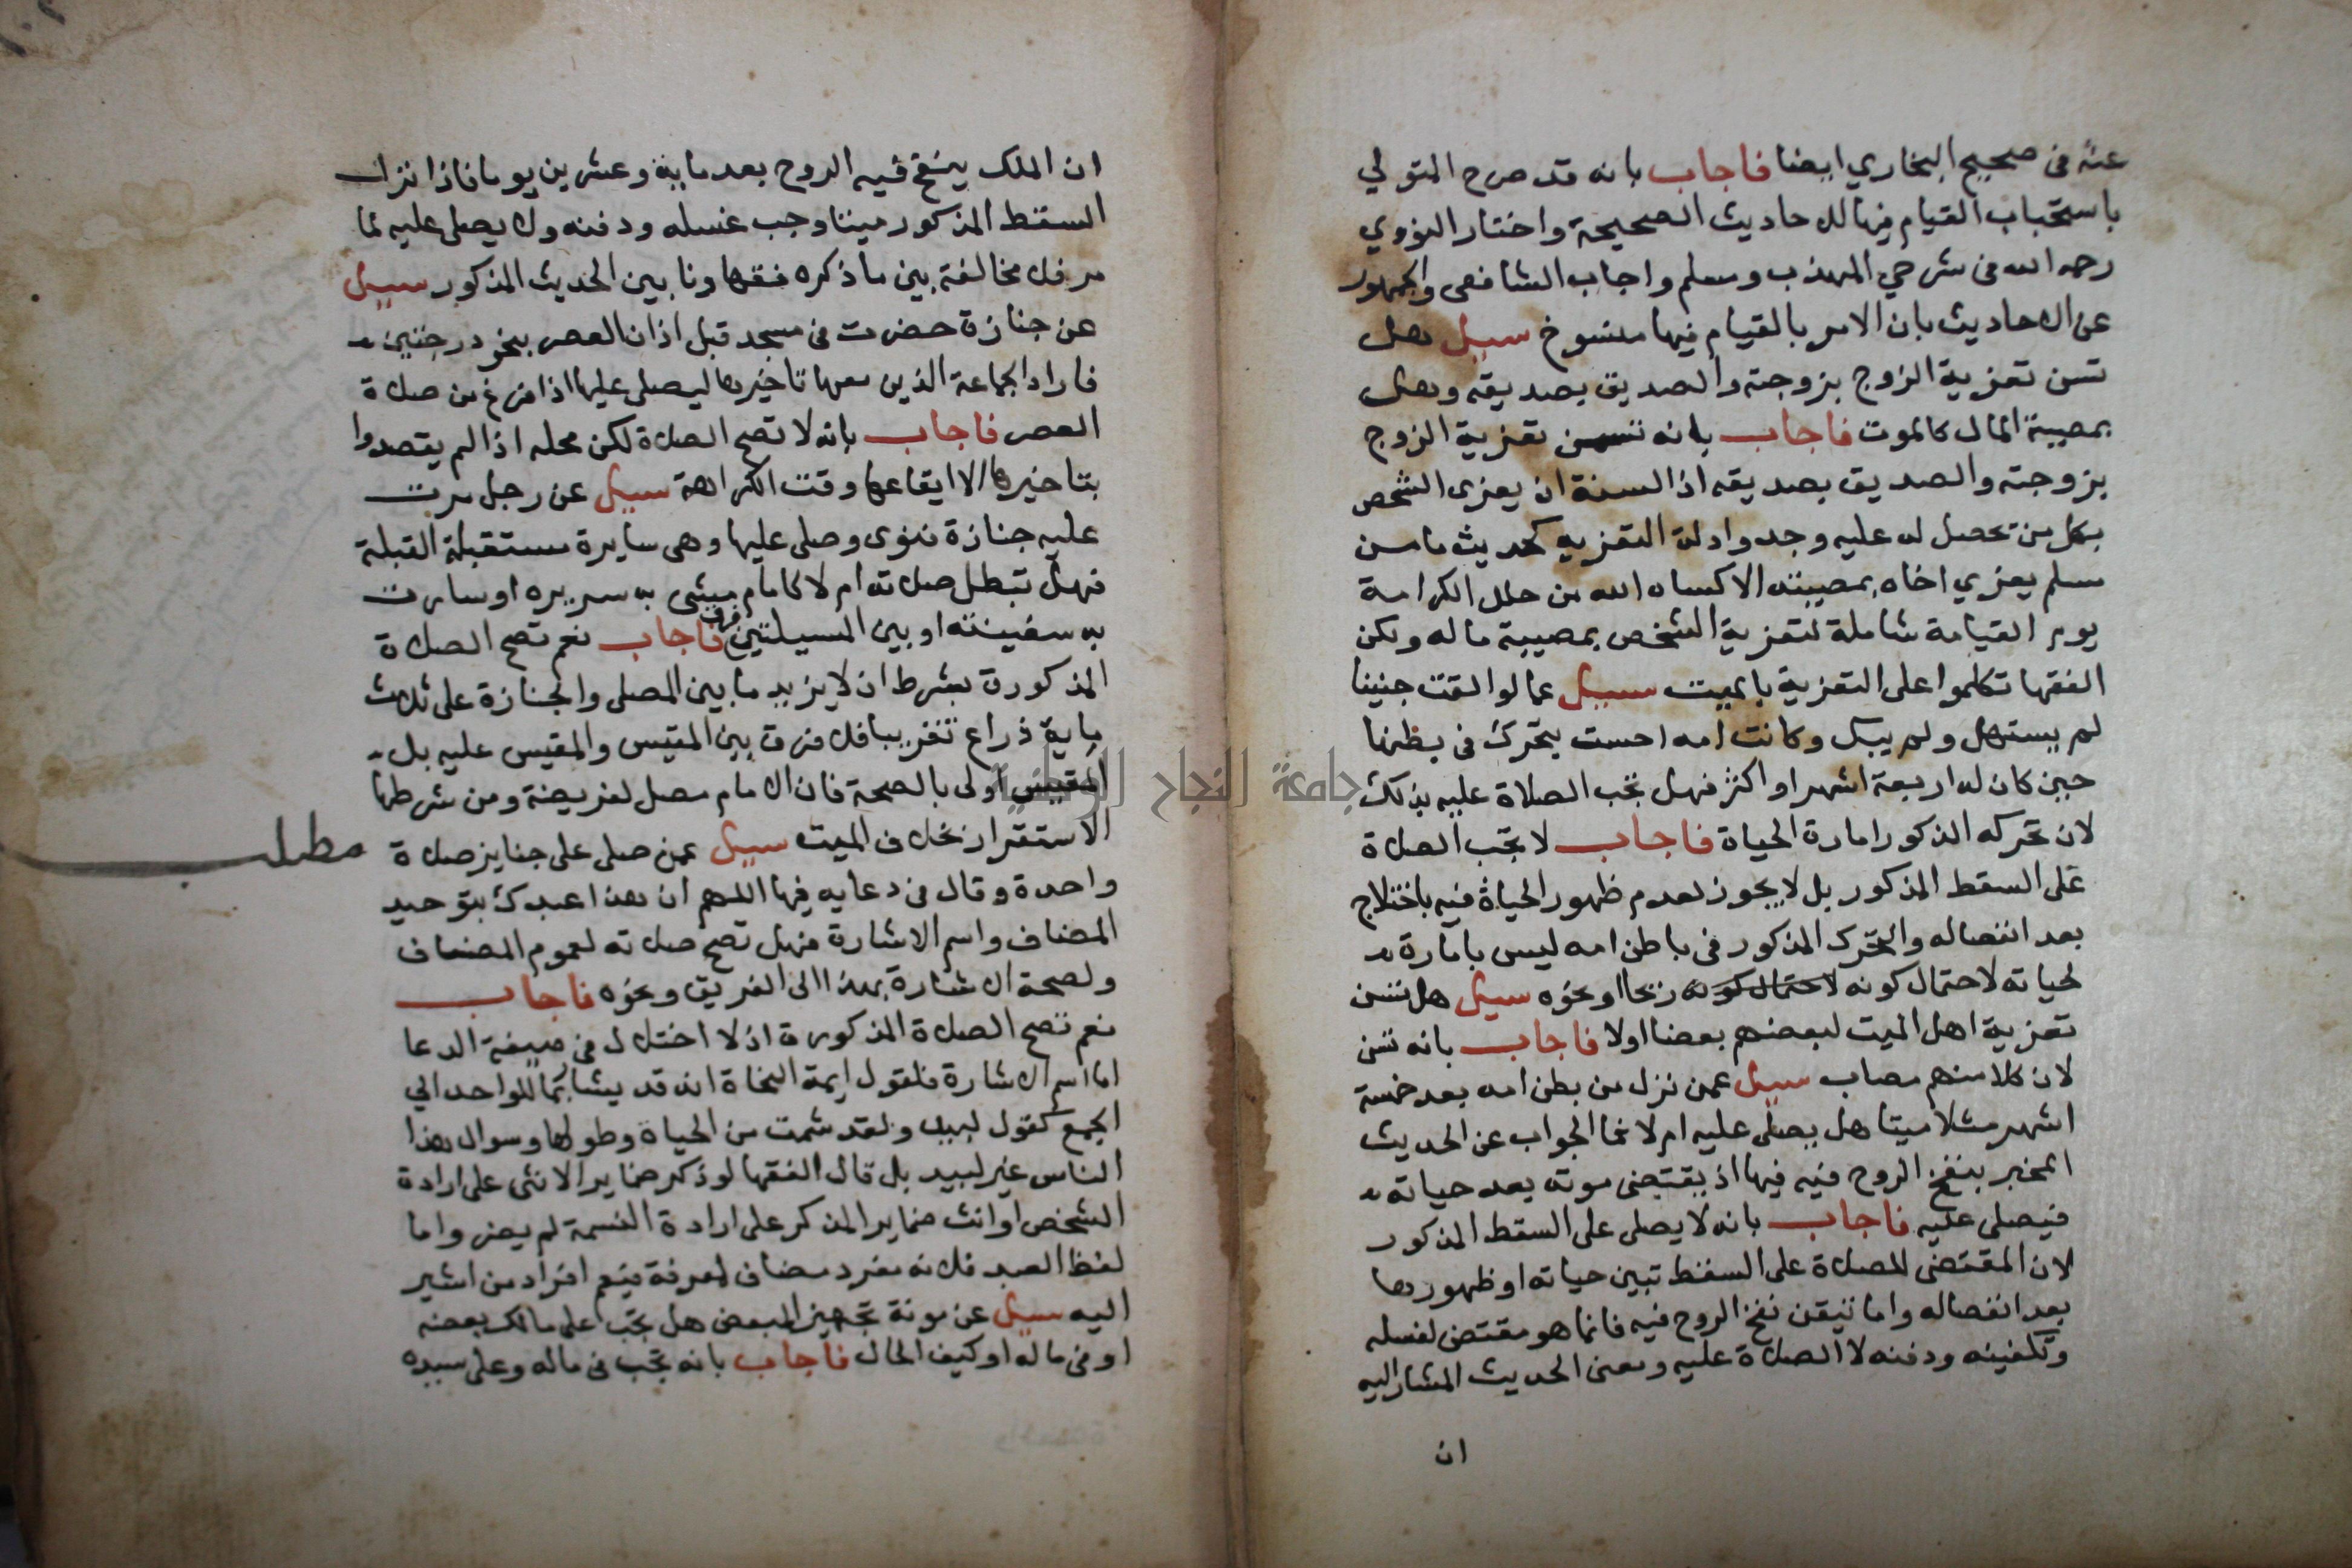 عنه فى صحيح البخاري ايضا فاجاب بانه قد صرح المتولي
باستحباب القيام فيها للاحاديث الصحيحة واختار النووي
رحمه الله فى شرحي المهذب ومسلم واجاب الشافعى والجمهور
عن الاحاديث بان الامر بالقيام فيها منسوخ سيل هل
تسن تعزية الزوج بزوجته والصديق بصديقه وهل
بمصيبة المال كالموت فاجاب بانه تسن تعزية الزوج
بزوجته والصديق بصديقه اذ السنة ان يعزى الشخص
بكل من تحصل له عليه وجد وادلة التعزية كحديث ما من
مسلم يعزي اخاه بمصيبته الا كساه الله من حلل الكرامة
يوم القيامة شاملة لتعزية الشخص بمصيبة ماله ولكن
الفقها تكلموا على التعزية بالميت سيل عما لو القت جنينا
لم يستهل ولم يبك وكانت امه احست بتحرك فى بطنها
حين كان له اربعة اشهر او اكثر فهل تجب الصلاة عليه بذلك
لان تحركه المذكور امارة الحياة فاجاب لا تجب الصلاة
على السقط المذكور بل لا يجوز لعدم ظهور الحياة فيه باختلاج
بعد انفصاله والتحرك المذكور فى باطن امه ليس بامارة
لحياته لاحتمال كونه لاحتمال كونه ريحا او نحوه سيل هل تسن
تعزية اهل الميت لبعضهم بعضا اولا فاجاب بانه تسن
لان كلا منهم مصاب سيل عمن نزل من بطن امه بعد خمسة
اشهر مثلا ميتا هل يصلى عليه ام لا فما الجواب عن الحديث
المخبر بنفخ الروح فيه فيها اذ يقتضى موته بعد حياته
فيصلى عليه فاجاب بانه لا يصلى على السقط المذكور
لان المقتضى للصلاة على السقط تبين حياته او ظهورها
بعد انفصاله واما تيقن نفخ الروح فيه فانما هو مقتض لغسله
وتكفينه ودفنه لا الصلاة عليه ومعنى الحديث المشار اليه
ان
ان الملك ينفخ فيه الروح بعد ماية وعشرين يوما فاذا نزل
السقط المذكور ميتا وجب غسله ودفنه ولا يصلى عليه لما
مر فلا مخالفة بين ما ذكره فقهاونا بين الحديث المذكور سيل
عن جنازة حضرت فى مسجد قبل اذان العصر بنحو درجتين
فاراد الجماعة الذين معها تاخيرها ليصلى عليها اذا فرغ من صلاة
العصر فاجاب بانه لا تصح الصلاة لكن محله اذا لم يقصدوا
بتاخيرها الا ايقاعها وقت الكراهة سيل عن رجل مرت
عليه جنازة فنوى وصلى عليها وهى سايرة مستقبلة القبلة
فهل تبطل صلاته ام لا كامام مشى به سريره او سارت
به سفينته او بين المسيلتين فرق فاجاب نعم تصح الصلاة
المذكورة بشرط ان لا يزيد ما بين المصلى والجنازة على ثلاث
ماية ذراع تقريبا فلا فرق بين المقيس والمقيس عليه بل
المقيس اولى بالصحة فان الامام مصل لفريضة ومن شرطها
الاستقرار بخلاف الميت سيل عمن صلى على جنايز صلاة
مطلب
واحدة وقال فى دعايه فيها اللهم ان هذا عبدك بتوحيد
المضاف واسم الاشارة فهل تصح صلاته لعموم المضاف
ولصحة الاشارة بهذا الى الفريق ونحوه فاجاب
نعم تصح الصلاة المذكورة اذ لا اختلال فى صيغة الدعا
اما اسم الاشارة فلقول ايمة النحاة انه قد يشار بما للواحد الي
الجمع كقول لبيد ولقد سئمت من الحياة وطولها وسوال هذا
الناس كيف لبيد بل قال الفقها لو ذكر ضماير الانثى على ارادة
الشخص او انث ضماير المذكر على ارادة النسمة لم يضر واما
لفظ العبد فلانه مفرد مضاف لمعرفة فيعم افراد من اشير
اليه سيل عن مونة تجهيز المبعض هل تجب على مالك بعضه
او فى ماله او كيف الحال فاجاب بانه تجب فى ماله وعلى سيده
جامعة النجاح الوطنية